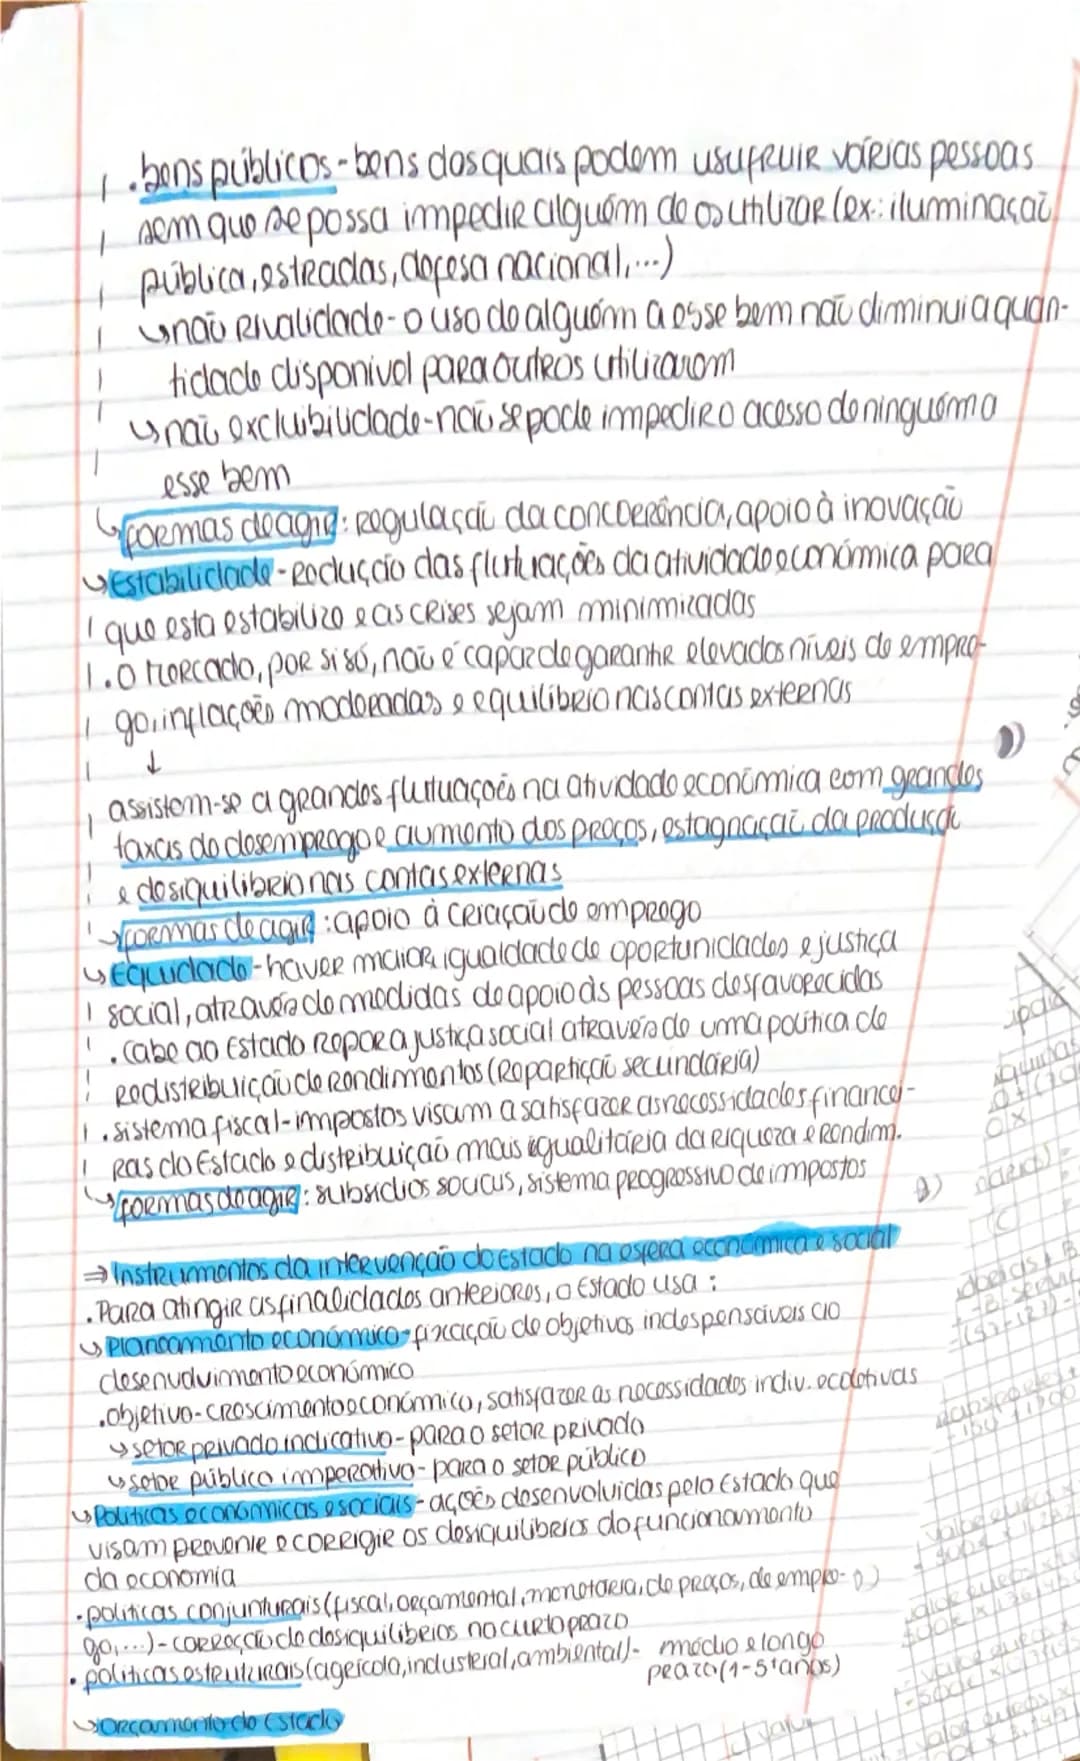 . bens públicos - bens dos quais podem usufruir várias pessoas
sem que se possa impedir alguém de os utilizar (ex: iluminação
pública, estradas, defesa nacional, ...)
↳ não rivalidade - o uso de alguém a esse bem não diminui a quan-
tidade disponível para outros utilizarem
↳ não exclubilidade - não se pode impedir o acesso de ninguém a
esse bem
↳ formas de agir: regulação da concorrência, apoio à inovação
↳ Estabilidade - Redução das flutuações da atividade económica para
que esta estabilize e as crises sejam minimizadas
. O mercado, por si só, não é capaz de garantir elevados níveis de empre-
go, inflações moderadas e equilíbrio nas contas externas
↓
assistem-se a grandes flutuações na atividade económica com grandes
taxas de desemprego e aumento dos preços, estagnação da produção
e desiquilíbrio nas contas externas
↳ formas de agir: apoio à criação de emprego
↳ Equidade - haver maior igualdade de oportunidades e justiça
social, através de medidas de apoio às pessoas desfavorecidas
. cabe ao Estado repor a justiça social através de uma política de
redistribuição de rendimentos (Repartição secundária)
. sistema fiscal - impostos visam a satisfazer as necessidades financei-
ras do Estado e distribuição mais igualitária da riqueza e rendim.
↳ formas de agir: subsídios sociais, sistema progressivo de impostos
⇒ Instrumentos da intervenção do Estado na esfera económica e social
. Para atingir as finalidades anteriores, o Estado usa:
↳ Planeamento económico - fixação de objetivos indespensáveis ao
desenvolvimento económico
. objetivo - crescimento económico, satisfazer as necessidades indiv. e coletivas
↳ setor privado indicativo - para o setor privado
↳ setor público imperativo - para o setor público
↳ Políticas económicas e sociais - ações desenvolvidas pelo Estado que
visam prevenir e corrigir os desiquilíbrios do funcionamento
da economia
. políticas conjunturais (fiscal, orçamental, monetária, de preços, de empre-
go, ...) - correção de desiquilíbrios no curto prazo
. políticas estruturais (agrícola, industrial, ambiental) - médio e longo
prazo (1-5 anos)
↳ Orçamento do Estado